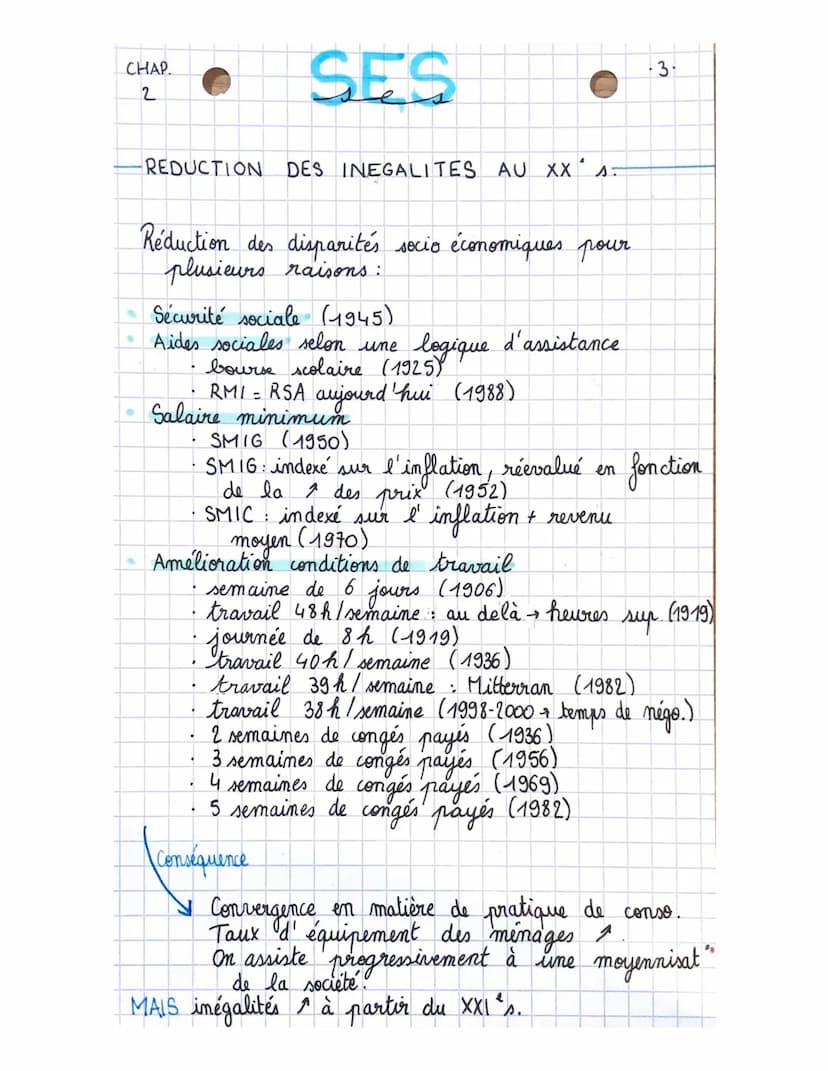 CHAP.
2
SES
ses
·3·
REDUCTION DES INEGALITES AU XXᵉ s.
Réduction des disparités socio économiques pour
plusieurs raisons :
• Sécurité sociale (1945)
• Aides sociales selon une logique d'assistance
· bourse scolaire (1925)
· RMI = RSA aujourd'hui (1988)
• Salaire minimum
· SMIG (1950)
· SMIG : indexé sur l'inflation, réevalué en fonction
de la ↗ des prix (1952)
· SMIC : indexé sur l'inflation + revenu
moyen (1970)
• Amélioration conditions de travail
· semaine de 6 jours (1906)
· travail 48h/semaine : au delà → heures sup (1919)
· journée de 8h (1919)
· travail 40h/semaine (1936)
· travail 39h/semaine : Mitterran (1982)
· travail 38h/semaine (1998-2000 → temps de négo.)
· 2 semaines de congés payés (1936)
· 3 semaines de congés payés (1956)
· 4 semaines de congés payés (1969)
· 5 semaines de congés payés (1982)
Conséquence
Convergence en matière de pratique de conso.
Taux d'équipement des ménages ↗.
On assiste progressivement à une moyennisat°
de la société.
MAIS inégalités ↗ à partir du XXIᵉ s.